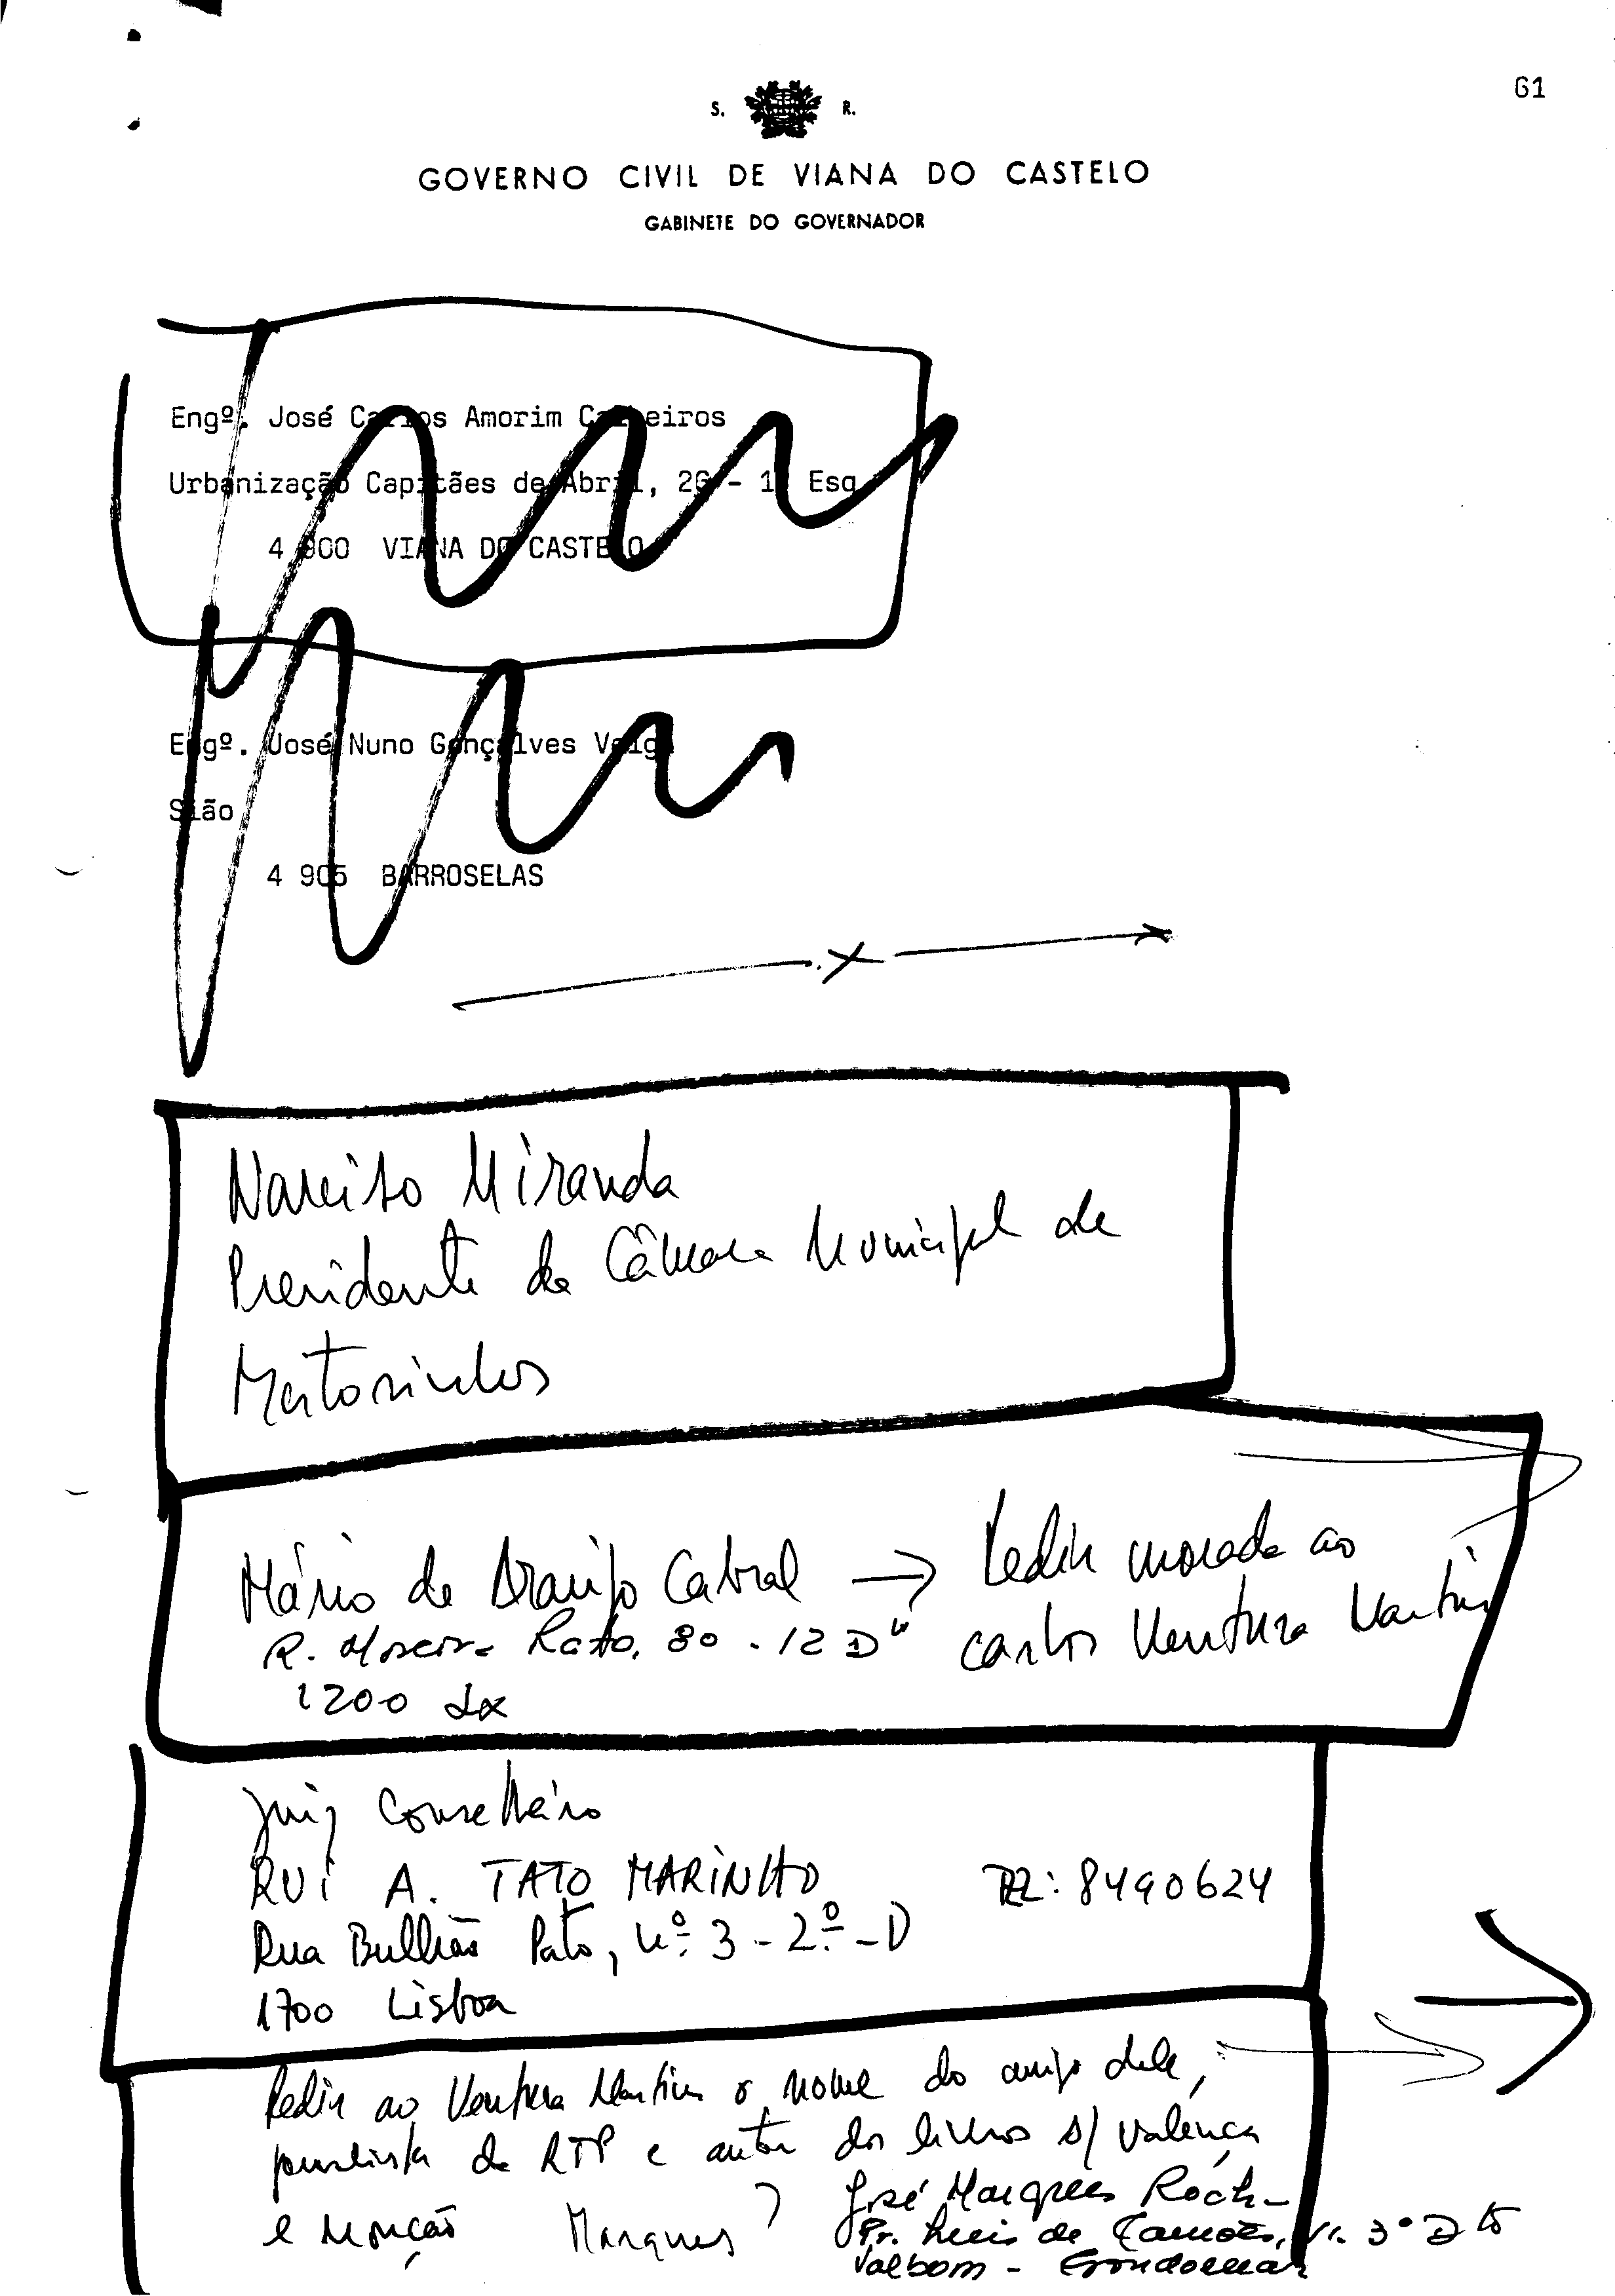 61
S. R.
GOVERNO CIVIL DE VIANA DO CASTELO
GABINETE DO GOVERNADOR
Engº. José Carlos Amorim Calheiros
Urbanização Capitães de Abril, 26 - 1º Esq
4 900 VIANA DO CASTELO
Engº. José Nuno Gonçalves Veiga
Sião
4 905 BARROSELAS
Narciso Miranda
Presidente da Câmara Municipal de
Matosinhos
Mário de Araújo Cabral → Pedir morada ao
Carlos Ventura Martins
R. Moreira Rato, 80 - 12 D
1200 Lx
Juiz Conselheiro
RUI A. TATO MARINHO 8490624
Rua Bulhão Pato, nº 3 - 2º - D
1700 Lisboa
Pedir ao Ventura Martins o nome do amigo dele,
jornalista da RTP e autor dos livros s/ Valença
e Monção Marques?
José Marques Rocha
Pr. Luis de Camões, 3º Dto
Valbom - Gondomar